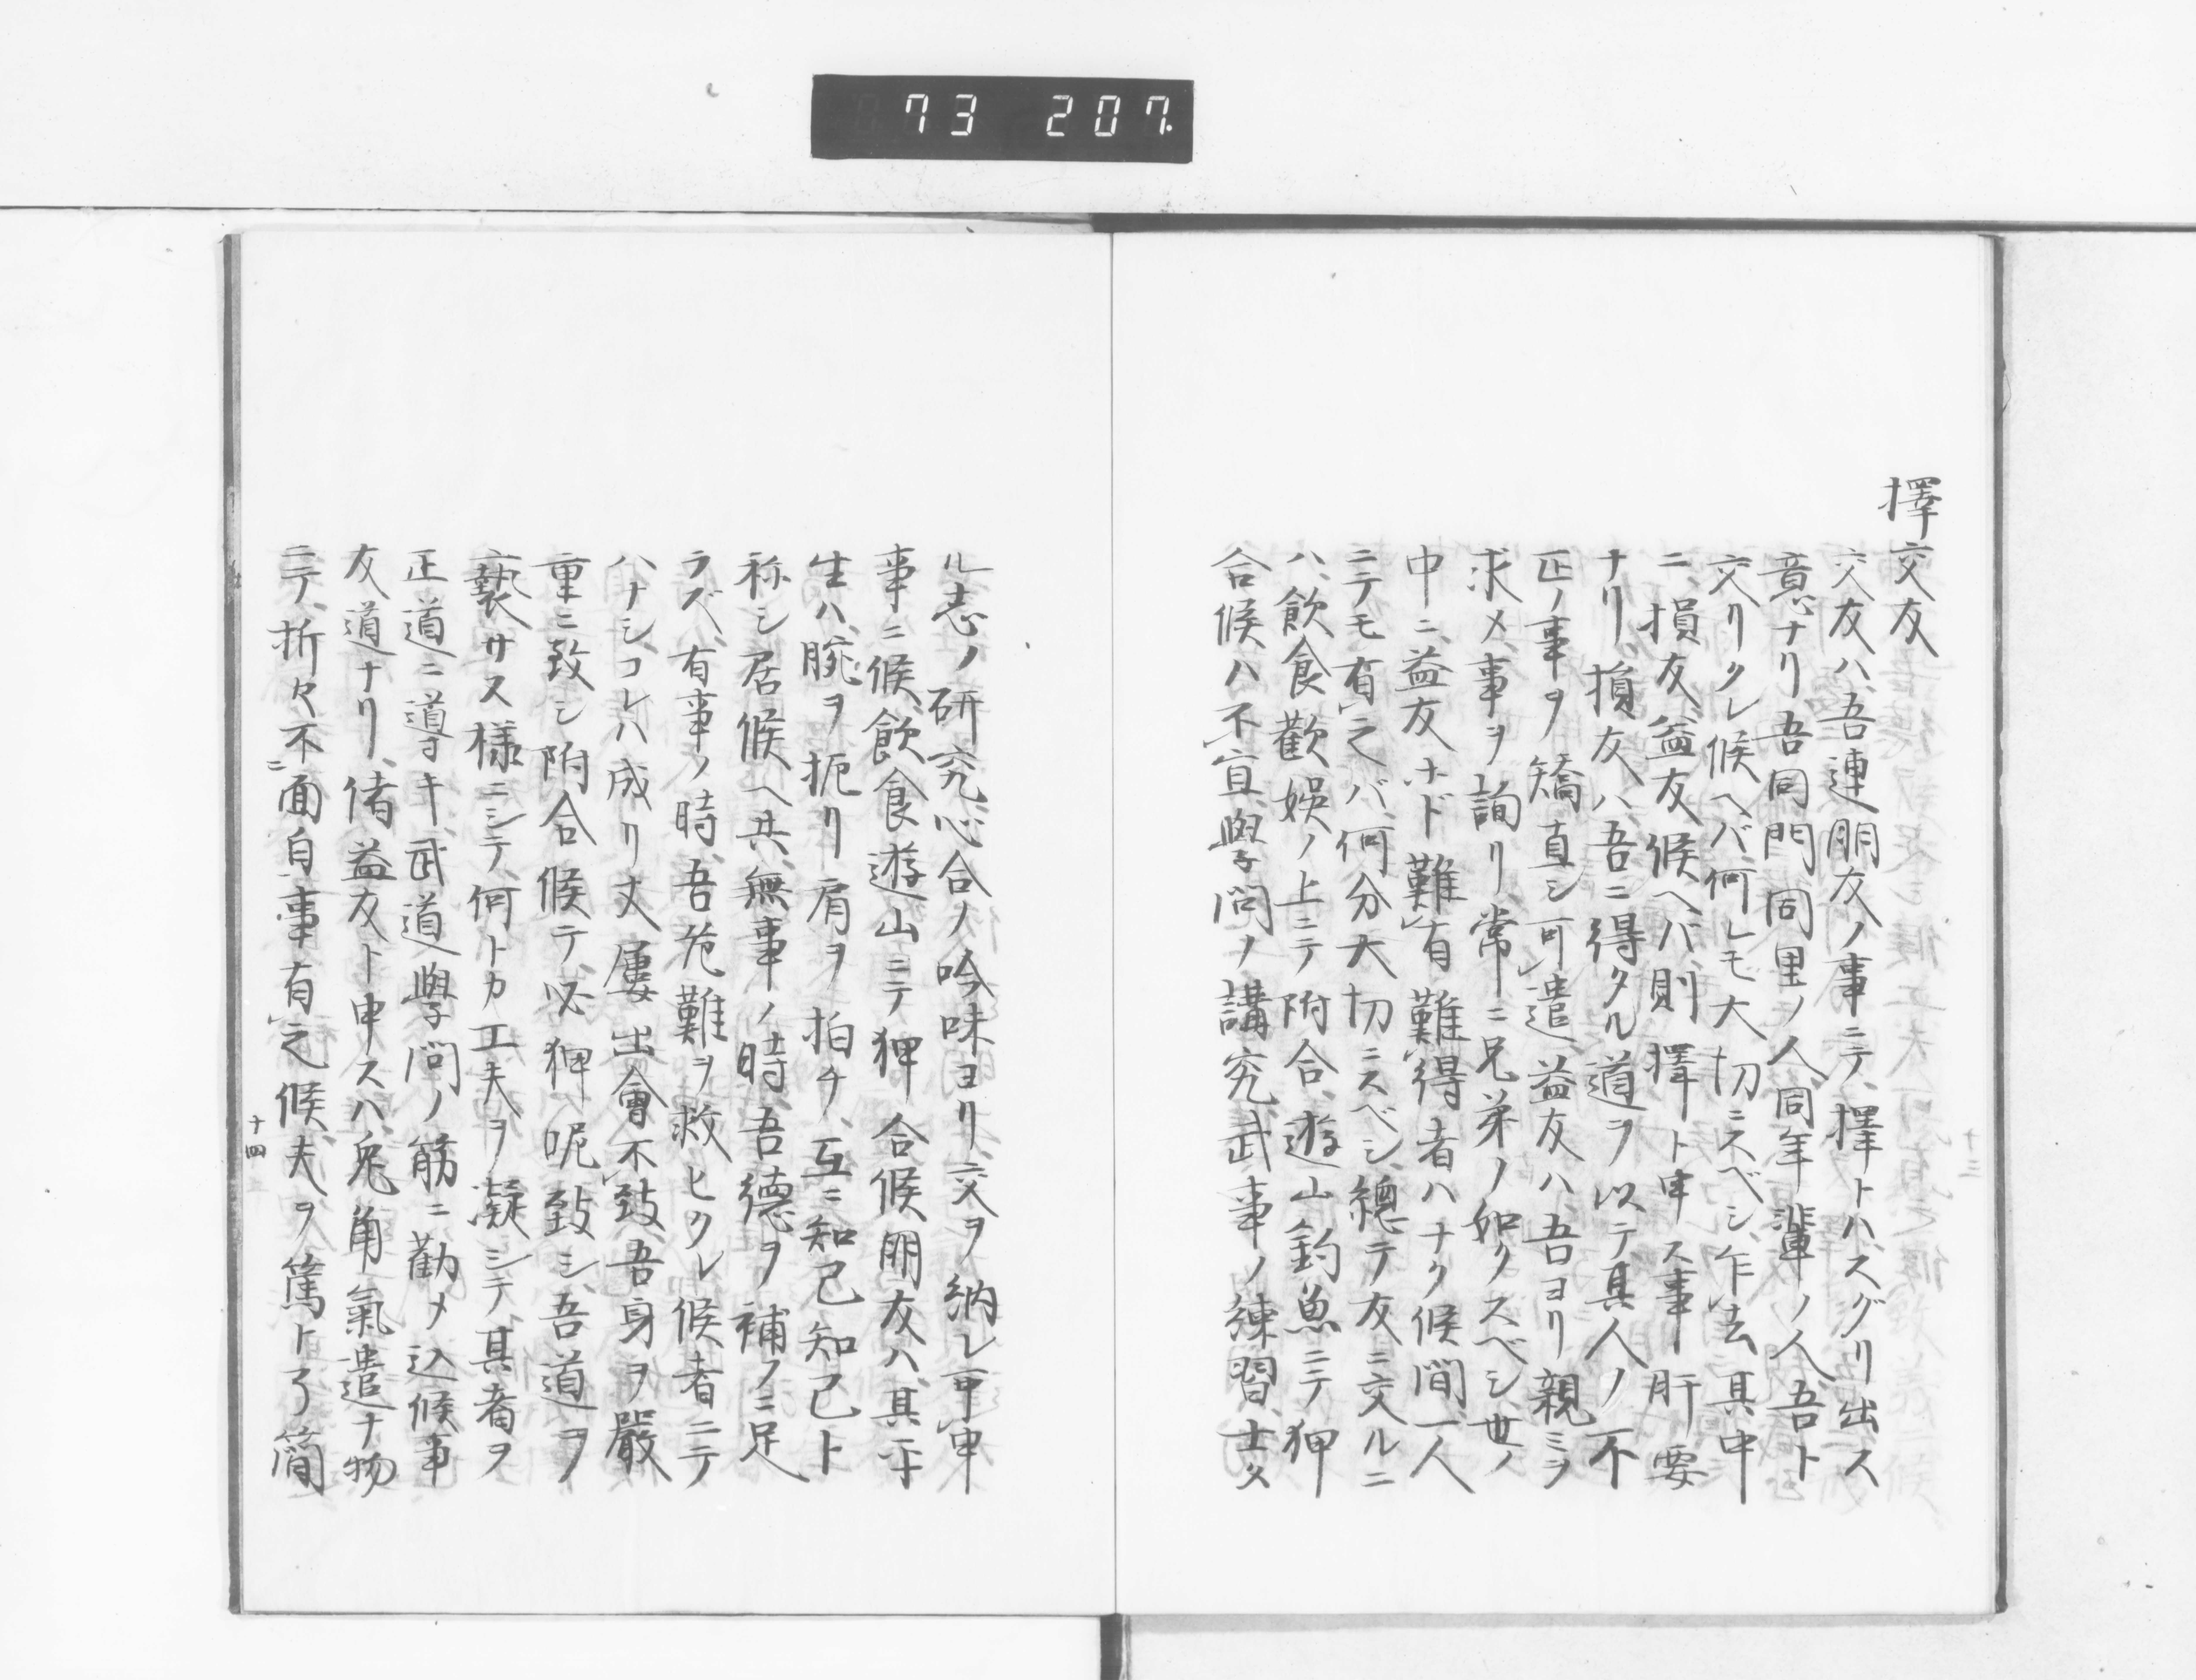 73 207.
擇交友
交友ハ、吾連朋友ノ事ニテ、擇トハスグリ出ス
意ナリ吾同門同里ノ人、同年輩ノ人吾ト
交リクレ候ヘバ何レモ大切ニスベシ、乍去其中
ニ、損友、益友候ヘバ、則擇ト申ス事肝要
ナリ、損友ハ、吾ニ得タル道ヲ以テ、其人ノ不
正ノ事ヲ矯直シ可遣、益友ハ吾ヨリ親ミヲ
求メ事ヲ詢リ常ニ兄弟ノ如クスベシ、世ノ
中ニ、益友ホド難有難得者ハナク候間、一人
ニテモ有之バ、何分大切ニスベシ、總テ友ニ交ルニ
ハ、飲食歡娯ノ上ニテ附合、遊山釣魚ニテ狎
合候ハ不宜、學問ノ講究武事ノ練習、士タ
ル志ノ研究、心合ノ吟味ヨリ、交ヲ納レ可申
事ニ候、飲食遊山ニテ狎合候朋友ハ、其平
生ハ、腕ヲ扼リ肩ヲ拍チ、互ニ知己知己ト
称シ居候ヘ共、無事ノ時、吾德ヲ補フニ足
ラズ、有事ノ時、吾危難ヲ救ヒクレ候、者ニテ
ハナシ、コレハ成リ丈屢出會不致、吾身ヲ嚴
重ニ致シ附合候テ、必狎呢致シ、吾道ヲ
褻サス様ニシテ、何トカ工夫ヲ凝シテ、其者ヲ
正道ニ導キ武道學問ノ筋ニ勸メ込候事
友道ナリ、偖益友ト申スハ、兎角氣遣ナ物
ニテ、折々不面白事有之候、夫ヲ篤ト了簡
十四